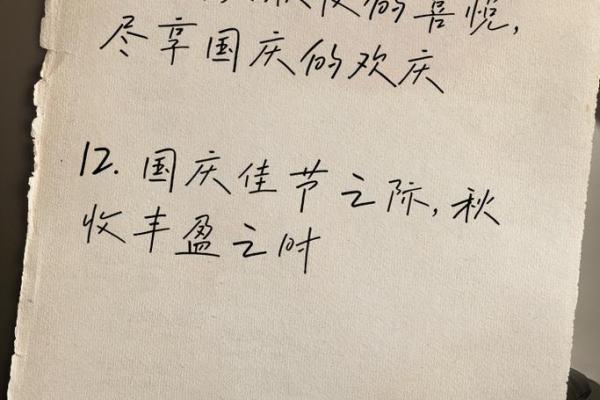 的喜悦,
尽享国庆的欢庆
12. 国庆佳节之际, 秋
收丰盈之时